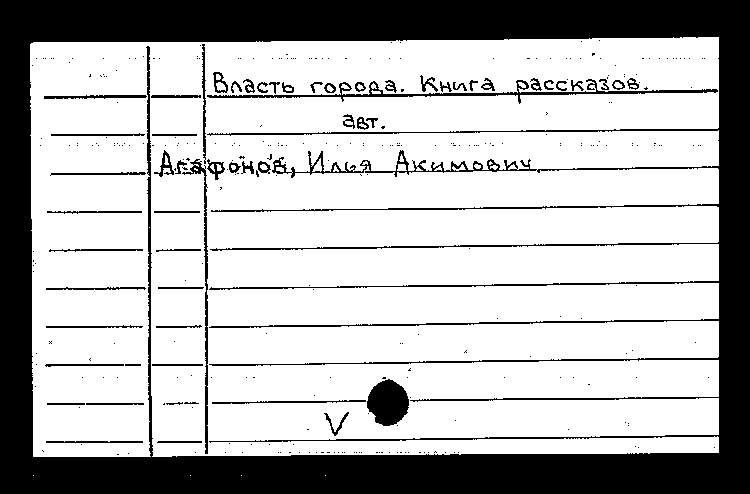 Власть города. Книга рассказов.
авт.
Агафонов, Илья Акимович.
V